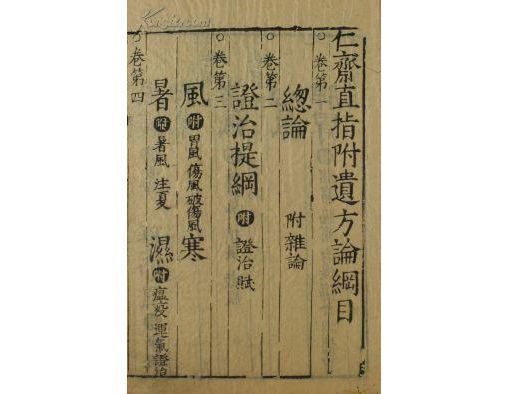 仁齋直指附遺方論綱目
○卷第一
總論 附雜論
○卷第二
證治提綱 附 證治賦
○卷第三
風 附 胃風 傷風 破傷風 寒
暑 附 暑風 注夏 濕 附 瘟疫 運氣證治
○卷第四